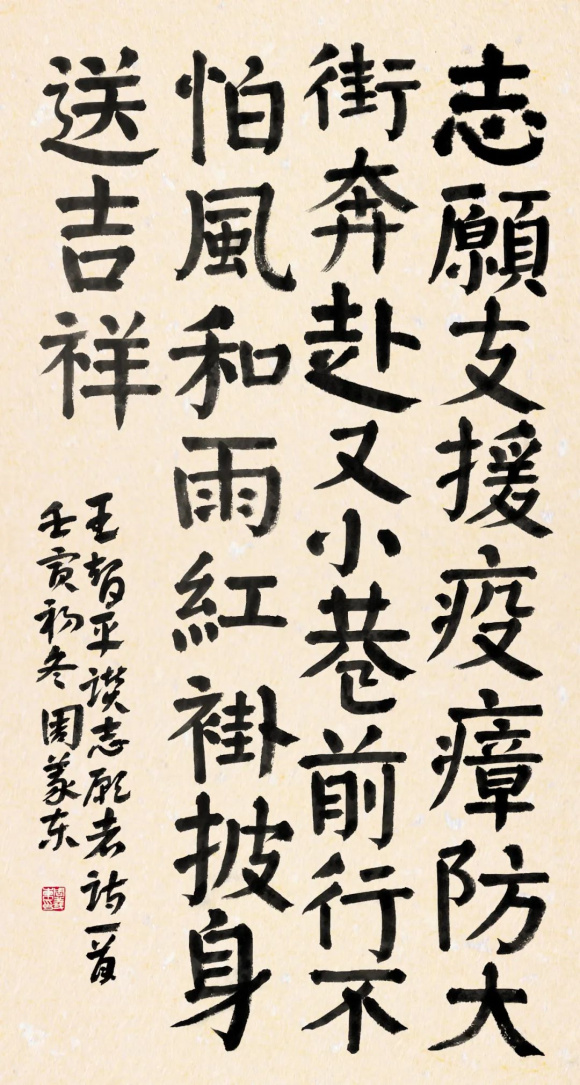 志願支援疫瘴防大
街奔赴又小巷前行不
怕風和雨紅褂披身
送吉祥
王智平讚志願者詩一首
壬寅初冬周義东